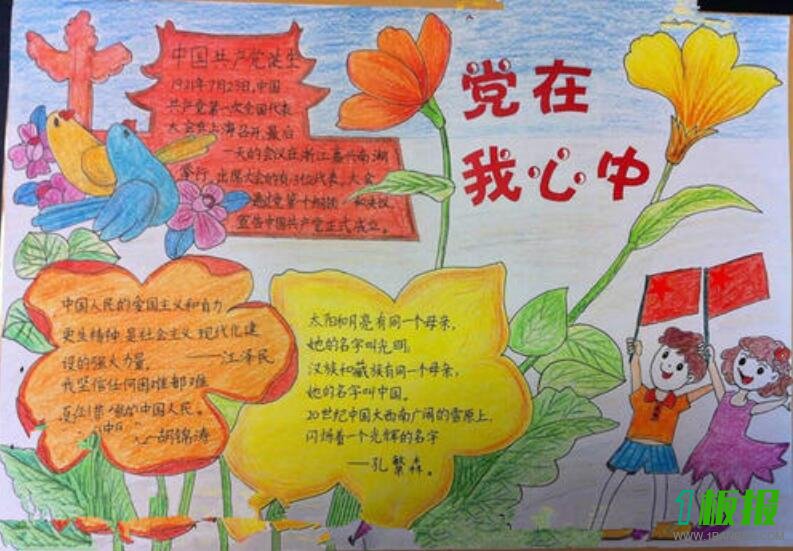 中国共产党诞生
1921年7月23日,中国
共产党第一次全国代表
大会在上海召开,最后
一天的会议在浙江嘉兴南湖
举行,出席大会的有13位代表,大会
通过党第十纲领
和决议,
宣告中国共产党正式成立。
党在
我心中
中国人民的爱国主义和自力
更生精神是社会主义现代化建
设的强大力量,
——江泽民
我坚信任何困难都难
的中国人民。
——胡锦涛
太阳和月亮有同一个母亲,
她的名字叫光明,
汉族和藏族有同一个母亲,
她的名字叫中国。
20世纪中国大西南广阔的雪原上,
闪烁着一个光辉的名字
——孔繁森。
1板报